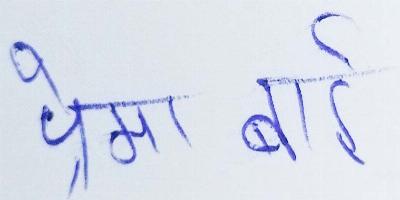 प्रेमा बाई